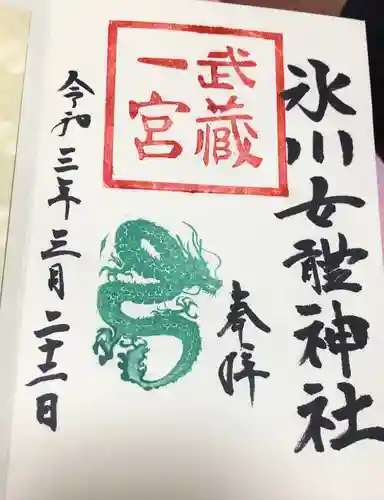 氷川女體神社
奉拝
武蔵
一宮
令和三年三月二十二日